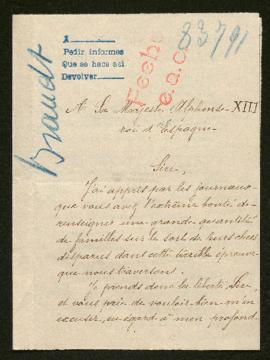 A
Pedir informes
Que se hace así
Devolver
83791
Fecho
Brandt
A Sa Majesté Alphonse XIII
roi d'Espagne
Sire,
J'ai appris par les journaux
que vous avez l'extrême bonté de
renseigner une grande quantité
de familles sur le sort de leurs chers
disparus dans cette terrible épreuve
que nous traversons.
Je prends donc la liberté, Sire,
et vous prie de vouloir bien m'en
excuser, eu égard à mon profond